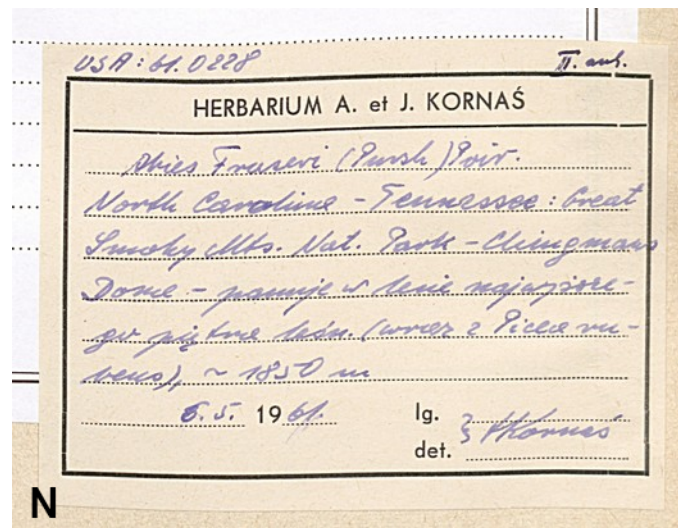 USA: 61.0228 II. auh.
HERBARIUM A. et J. KORNAŚ
Abies Fraseri (Pursh) Poir.
North Carolina - Tennessee: Great
Smoky Mts. Nat. Park - Clingmans
Dome - panuje w lesie najwyższe-
go piętra leśn. (wraz z Picea ru-
bens), ~ 1850 m
6.5. 1961. lg.
det. } AKornaś
N